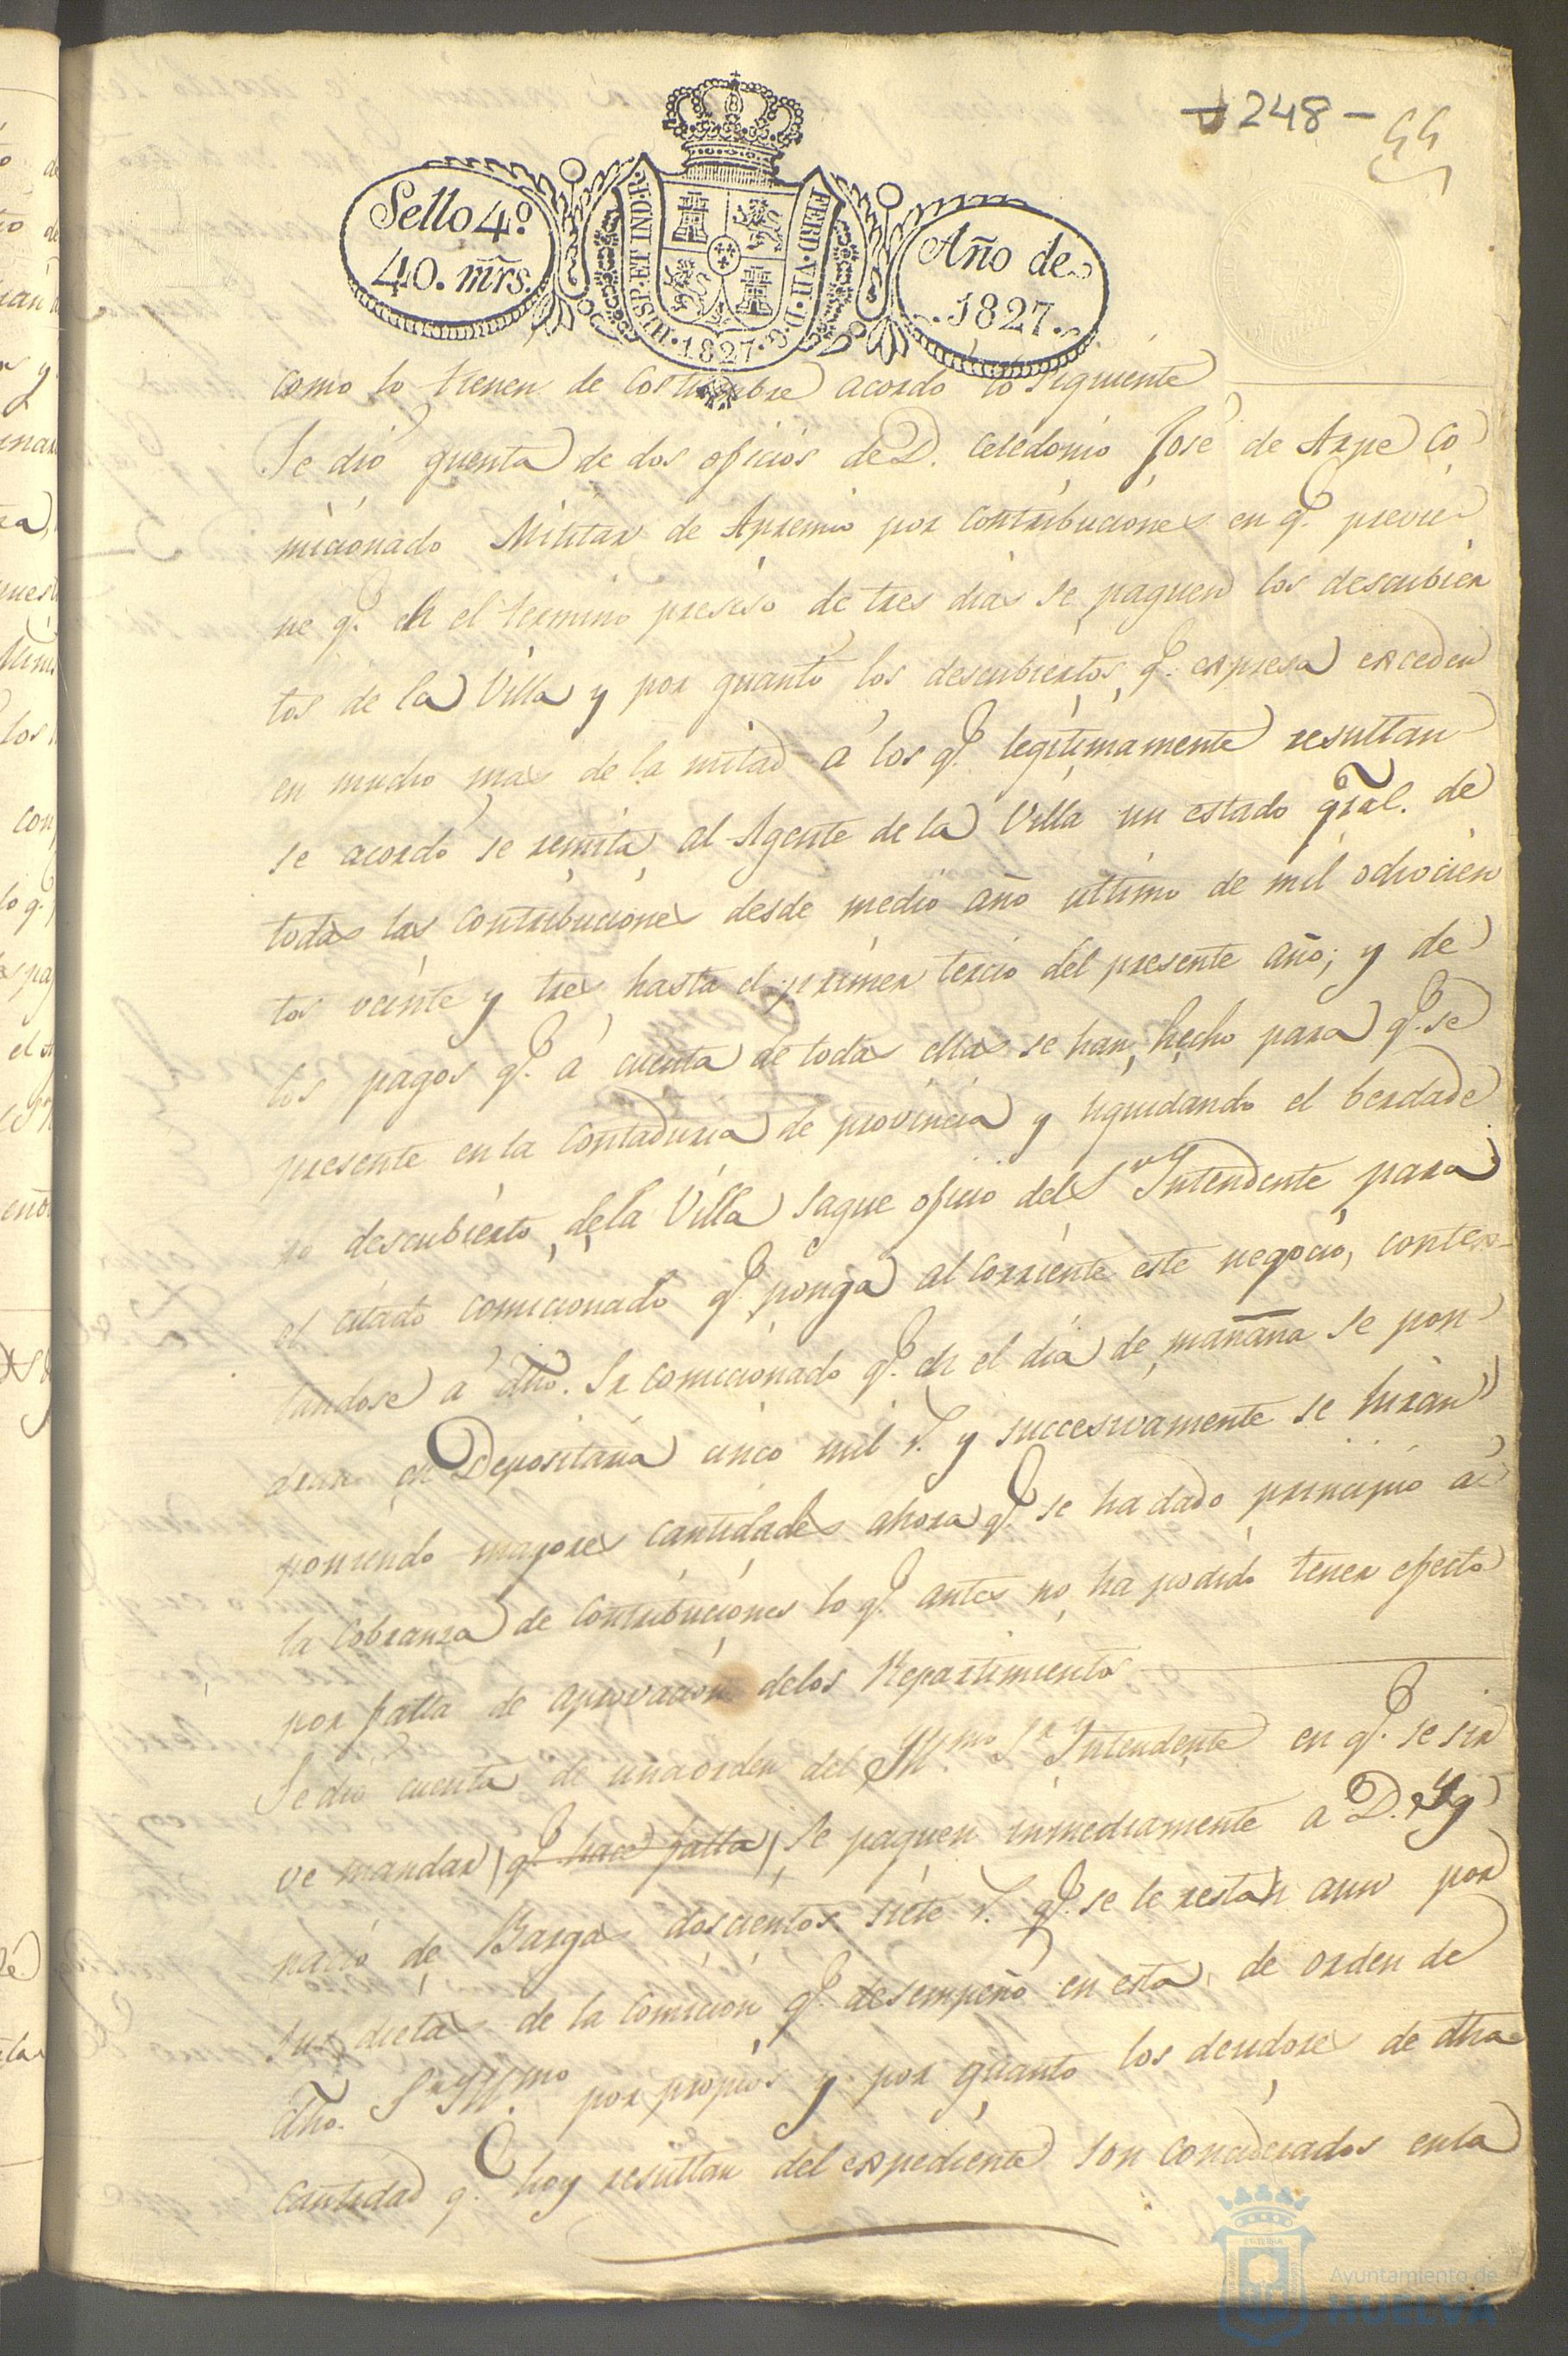 248 - 44
Sello 4º
40. mrs.
HISP·ET IND·R·
FERD·VII·D·G·
·1827·
Año de
1827.
como lo tienen de costumbre acordó lo siguiente
Se dio quenta de dos oficios de D. Celedonio José de Arpe Co
micionado Militar de Apremio por contribuciones en q.e previe
ne q.e en el termino preciso de tres dias se paguen los descubier
tos de la Villa y por quanto los descubiertos q.e expresa exceden
en mucho mas de la mitad á los q.e legitimamente resultan
se acordó se remita al Agente de la Villa un estado gral. de
todas las contribuciones desde medio año ultimo de mil ochocien
tos veinte y tres hasta el primer tercio del presente año; y de
los pagos q.e á cuenta de todas ellas se han hecho para q.e se
presente en la Contaduria de provincia y liquidando el berdade
ro descubierto de la Villa saque oficio del Sor Yntendente para
el citado comicionado q.e ponga al corriente este negocio, contes-
tandose á dho. Sr comicionado q.e en el dia de mañana se pon
dran en Depositaria cinco mil r.s y succesivamente se hiran
poniendo mayores cantidades ahora q.e se ha dado principio á
la cobranza de contribuciones lo q.e antes no ha podido tener efecto
por falta de aprovacion de los Repartimientos
Se dio cuenta de una orden del Yll.mo Sr Yntendente en q.e se sir
ve mandar q.e hace falta se paguen inmediamente a D. Yg
nacio de Bargas doscientos siete r.s q.e se le restan aun por
sus dietas de la comicion q.e desempeñó en esta de orden de
dho. Sr Yll.mo por propios y por quanto los deudores de dha
cantidad q.e hoy resultan del expediente son conciderados en la
Ayuntamiento de
HUELVA